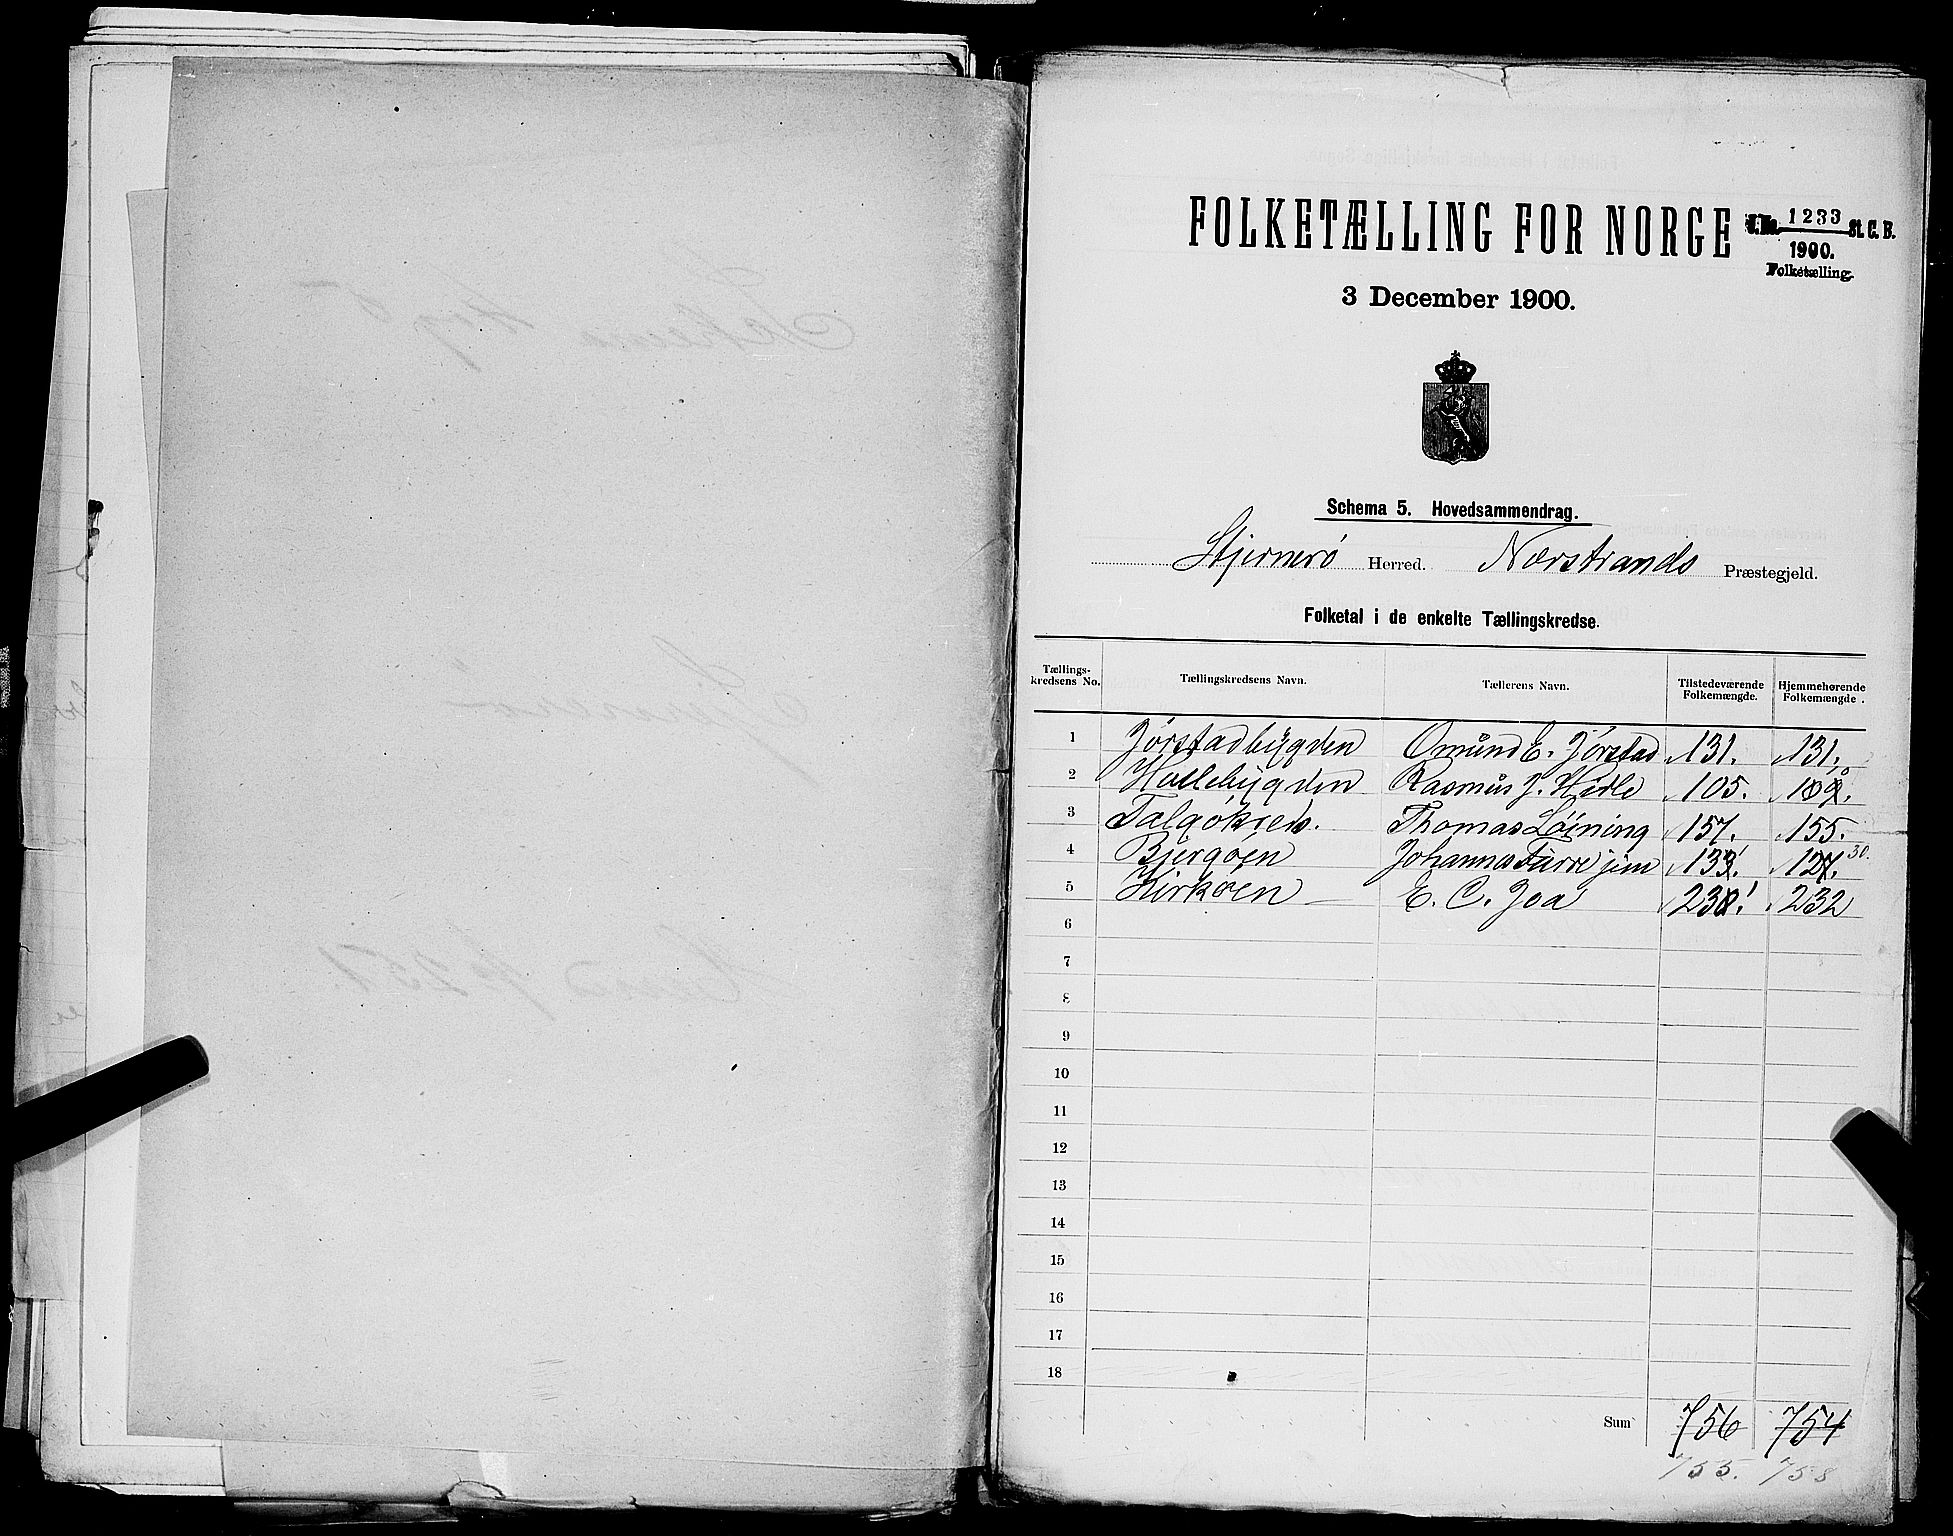 FOLKETÆLLING FOR NORGE
J. No. 1233 St. C. B.
1900.
Folketælling.
3 December 1900.
Schema 5. Hovedsammendrag.
Stjernerö Herred. Nærstrands Præstegjeld.
Folketal i de enkelte Tællingskredse.
Tællings-kredsens No. Tællingskredsens Navn. Tællerens Navn. Tilstedeværende Folkemængde. Hjemmehørende Folkemængde.
1 Jørstadbygden Omund E. Jørstad 131. 131.
2 Hallebygden Rasmus J. Hidle 105. 109.
3 Talgökreds. Thomas Löining 157. 155.
4 Bjergöen Johannas 133. 127. 30.
5 Kirköen E. C. Joa 232
6
7
8
9
10
11
12
13
14
15
16
17
18
Sum 756 754
755. 758